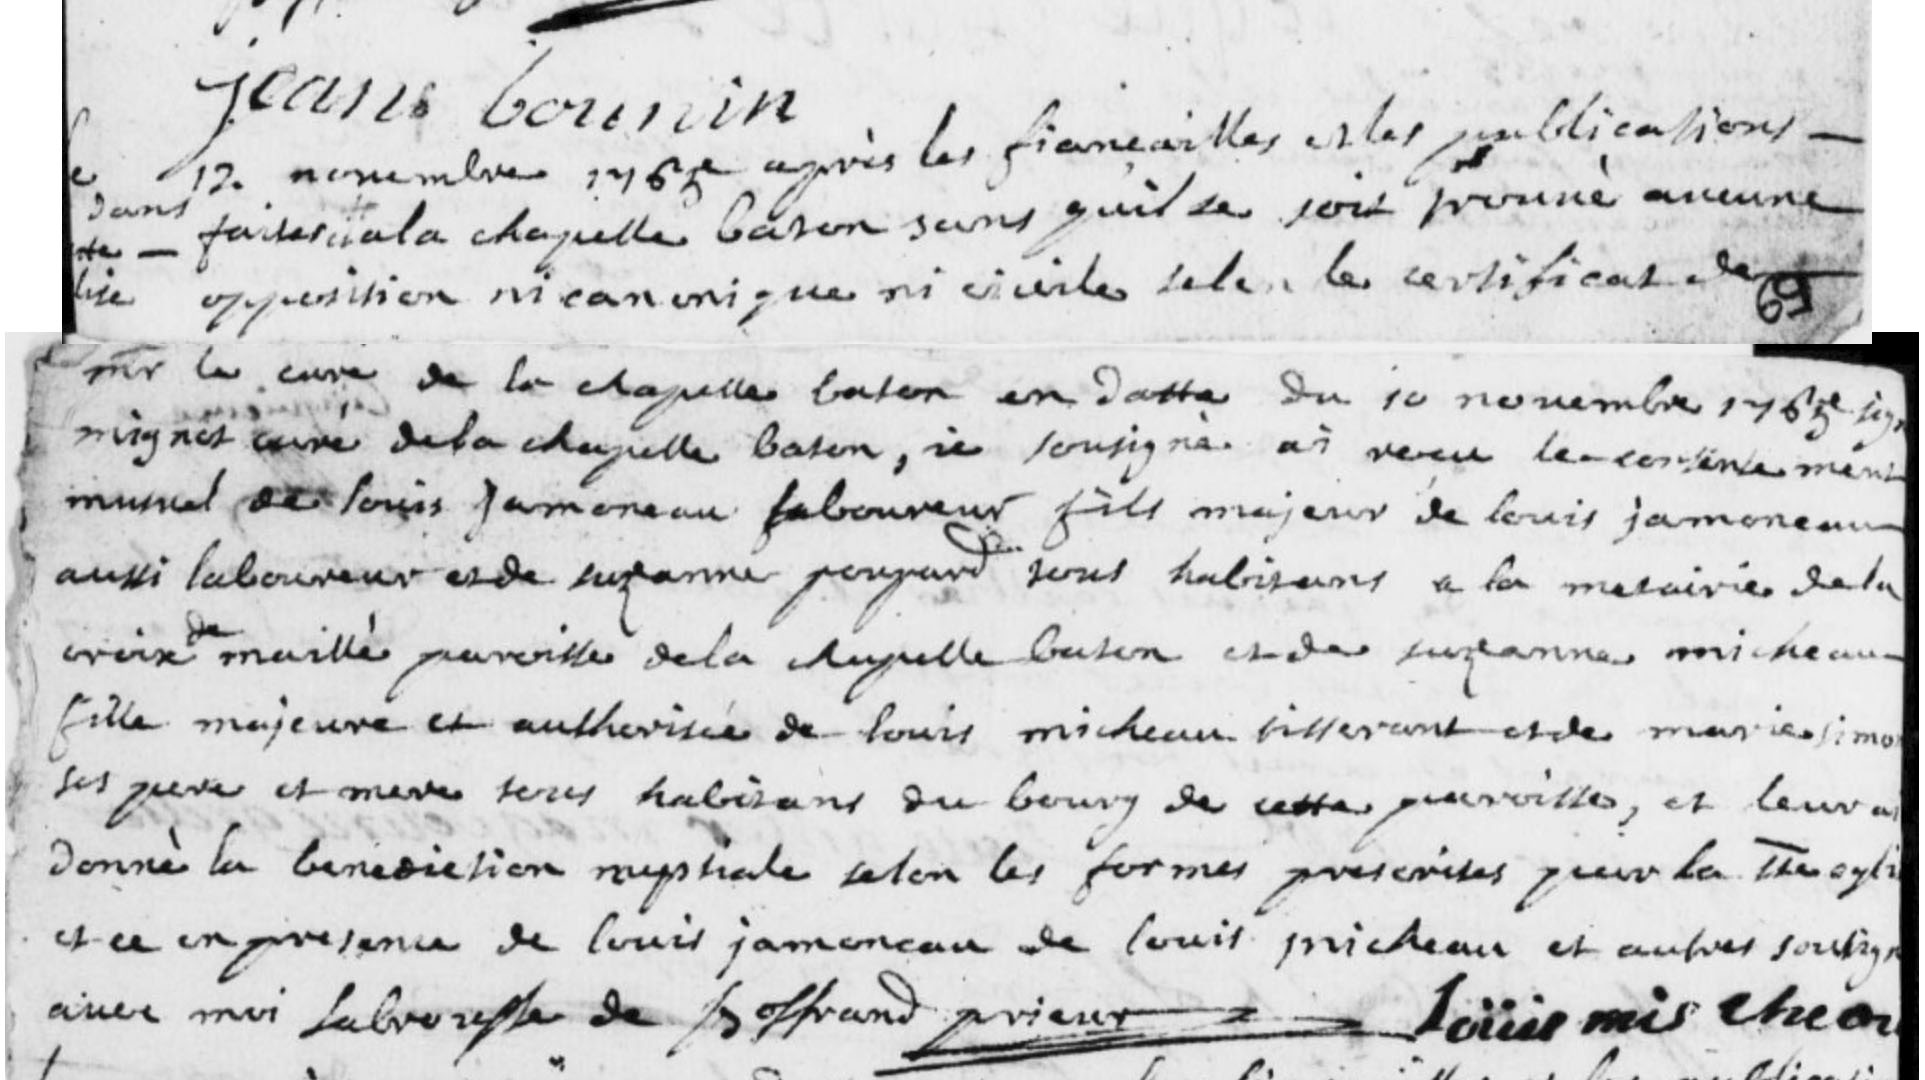 jeans bounin
le
dans
tte —
lise
12. novembre 1765 après les fiançailles et les publications —
faites a la chapelle baton sans quil se soit trouvè aucune
opposition ni canonique ni civile selon le certificat de
59
mr le curé de la chapelle baton en datte du 10 novembre 1765 sign
mignot curé de la chapelle baton, ie sousignè ai recu le consentement
mutuel de louis Jamoneau laboureur fils majeur de louis jamoneau
aussi laboureur et de suzanne poupard tous habitans a la metairie de la
croix de maillé paroisse de la chapelle baton et de suzanne micheau
fille majeure et authorisée de louis micheau tisserant et de marie simo
ses pere et mere tous habitans du bourg de cette paroisse, et leur ai
donnè la benediction nuptiale selon les formes prescrites par la Ste egli
et ce en presence de louis jamoneau de louis micheau et autres soussign
avec moi de prieur louis mis cheau